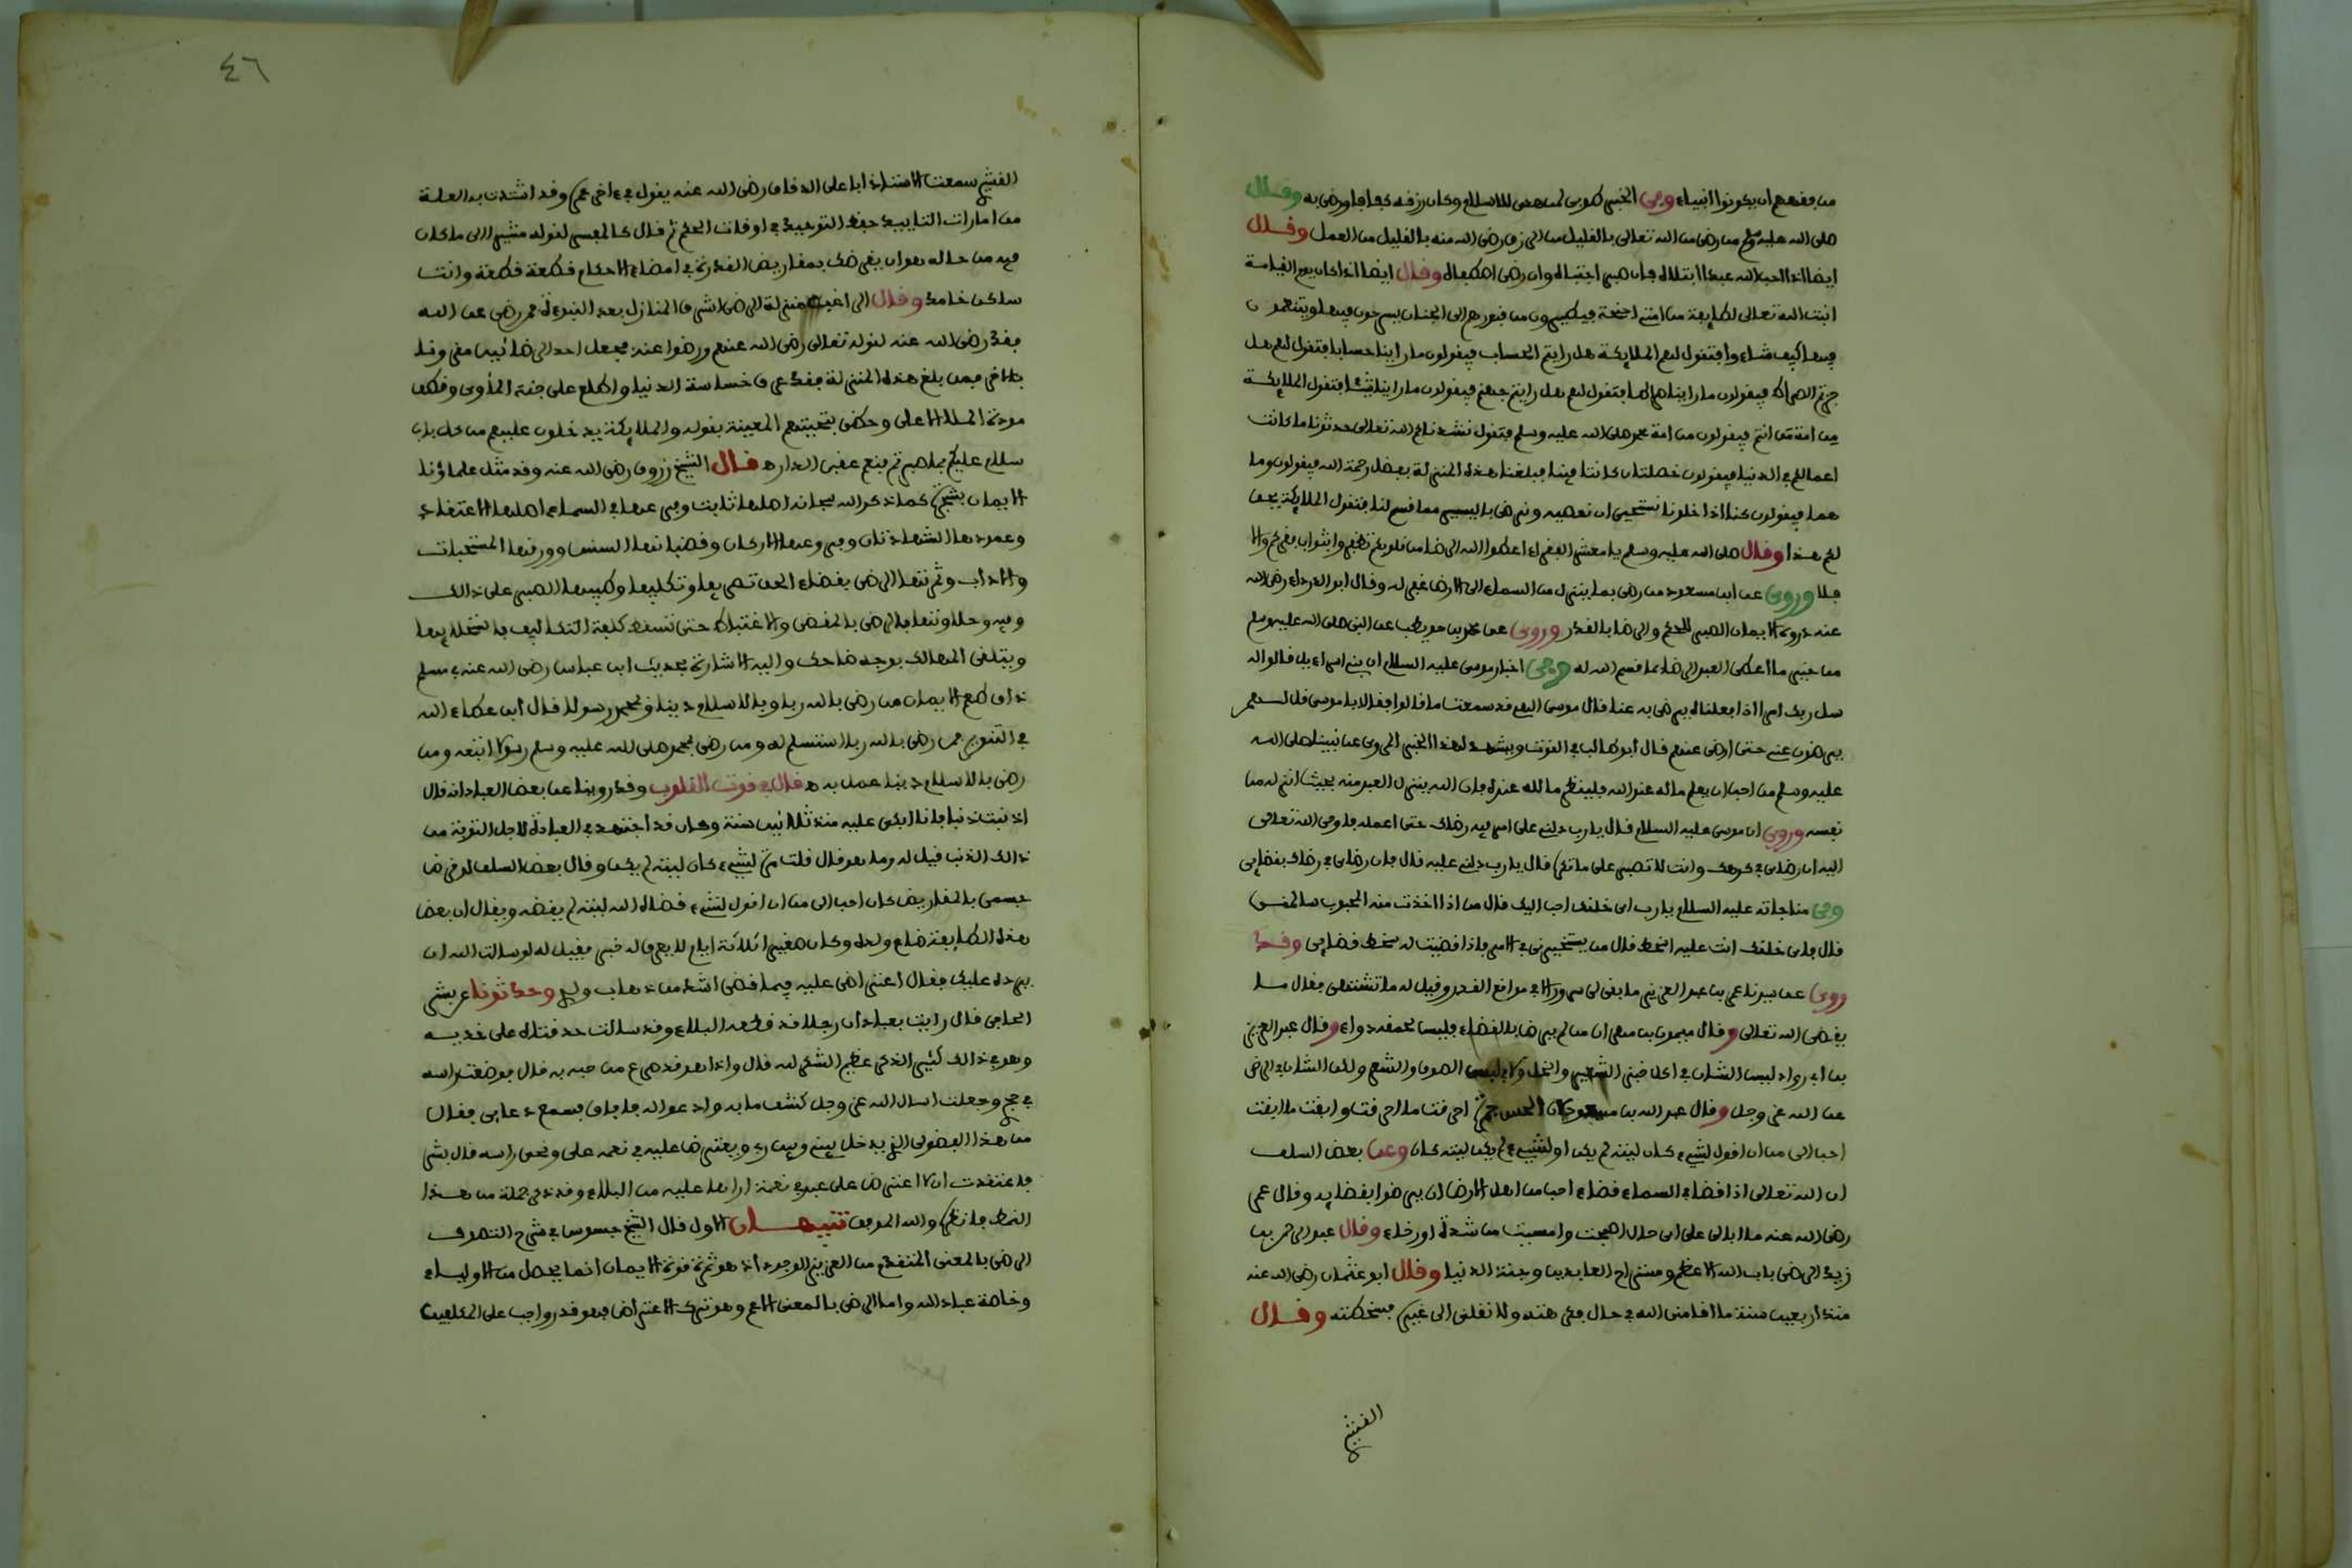 من فقههم ان يكونوا انبياء وفي الخبر طوبى لمن هدي للاسلام وكان رزقه كفافا ورضي به وقال
صلى الله عليه وسلم من رضي من الله تعالى بالقليل من الرزق رضي الله منه بالقليل من العمل وقال
ايضا اذا احب الله عبدا ابتلاه فان صبر اجتباه وان رضي اصطفاه وقال ايضا اذا كان يوم القيامة
انبت الله تعالى لطايفة من امتي اجنحة فيطيرون من قبورهم الى الجنان يسرحون فيها ويتنعمون
فيها كيف شاءوا فتقول لهم الملايكة هل رايتم الحساب فيقولون ما راينا حسابا فتقول لهم هل
جزتم الصراط فيقولون ما راينا صراطا فتقول لهم هل رايتم جهنم فيقولون ما راينا شيئا فتقول الملايكة
من امة من انتم فيقولون من امة محمد صلى الله عليه وسلم فتقول نشدناكم الله تعالى حدثونا ما كانت
اعمالكم في الدنيا فيقولون خصلتان كانتا فينا فبلغنا هذه المنزلة بفضل رحمة الله فيقولون وما
هما فيقولون كنا اذا خلونا نستحيي ان نعصيه ونرضى باليسير مما قسم لنا فتقول الملايكة يحق
لكم هذا وقال صلى الله عليه وسلم يا معشر الفقراء اعطوا الله الرضا من قلوبكم تظفروا بثواب فقركم والا
فلا وروي عن ابن مسعود من رضي بما ينزل من السماء الى الارض غفر له وقال ابو الدرداء رضي الله
عنه ذروة الايمان الصبر للحكم والرضا بالقدر وروي عن محمد بن حويطب عن النبي صلى الله عليه وسلم
من خير ما اعطي العبد الرضا بما قسم الله له وفي اخبار موسى عليه السلام ان بني اسراءيل قالوا له
سل ربك امرا اذا فعلناه يرضى به عنا فقال موسى الهي قد سمعت ما قالوا فقال يا موسى قل لهم
يرضون عني حتى ارضى عنهم قال ابو طالب في القوت ويشهد لهذا الخبر المروي عن نبينا صلى الله
عليه وسلم من احب ان يعلم ما له عند الله فلينظر ما لله عنده فان الله ينزل العبد منه بحيث انزله من
نفسه وروي ان موسى عليه السلام قال يا رب دلني على امر فيه رضاك حتى اعمله فاوحى الله تعالى
اليه ان رضاي في كرهك وانت لا تصبر على ما تكره قال يا رب دلني عليه قال فان رضاي في رضاك بقضايي
وفي مناجاته عليه السلام يا رب اي خلقك احب اليك قال من اذا اخذت منه المحبوب سالمني
قال فاي خلقك انت عليه اسخط قال من يستخيرني في الامر فاذا قضيت له سخط قضايي وقد
روي عن سيدنا عمر بن عبد العزيز ما بقي لي سرور الا في مواقع القدر وقيل له ما تشتهي فقال ما
يقضي الله تعالى وقال ميمون بن مهران من لم يرض بالقضاء فليس لحمقه دواء وقال عبد العزيز
بن ابي رواد ليس الشان في اكل خبز الشعير والخل ولا في لبس الصوف والشعر ولكن الشان في الرضى
عن الله عز وجل وقال عبد الله بن مسعود لان الحس جمرة احرقت ما احرقت وابقت ما ابقت
احب الي من ان اقول لشيء كان ليته لم يكن او لشيء لم يكن ليته كان وعن بعض السلف
ان الله تعالى اذا قضى في السماء قضاء احب من اهل الارض ان يرضوا بقضايه وقال عمر
رضي الله عنه ما ابالي على اي حال اصبحت وامسيت من شدة او رخاء وقال عبد الواحد بن
زيد الرضى باب الله الاعظم ومستراح العابدين وجنة الدنيا وقال ابو عثمان رضي الله عنه
منذ اربعين سنة ما اقامني الله في حال فكرهته ولا نقلني الى غيره فسخطته وقال
القشير
٤٦
القشيري سمعت الاستاذ ابا علي الدقاق رضي الله عنه يقول في ءاخر عمره وقد اشتدت به العلة
من امارات التاييد حفظ التوحيد في اوقات الحكم ثم قال كالمفسر لقوله مشيرا الى ما كان
فيه من حاله هو ان يقرضك بمقاريض القدرة في امضاء الاحكام قطعة قطعة وانت
ساكن خامد وقال الراغب منزلة الرضى اشرف المنازل بعد النبوءة فمن رضي عن الله
فقد رضي الله عنه لقوله تعالى رضي الله عنهم ورضوا عنه فجعل احد الرضائين مقرونا
بالاخر فمن بلغ هذه المنزلة فقد عرف خساسة الدنيا واطلع على جنة المأوى وخطب
مودة الملا الاعلى وحظي بتحيتهم المعينة بقوله والملايكة يدخلون عليهم من كل باب
سلام عليكم بما صبرتم فنعم عقبى الدار ه قال الشيخ زروق رضي الله عنه وقد مثل علماؤنا
الايمان بشجرة كما ذكر الله سبحانه اصلها ثابت وفرعها في السماء اصلها الاعتقاد
وعمودها الشهادتان وفروعها الاركان وقضبانها السنن وورقها المستحبات
والاداب وثمرتها الرضى بقضاء الحق تصريفا وتكليفا وطيبها الصبر على ذالك
وفيه وحلاوتها بالرضى بالمقضي والاغتباط حتى تسقط كلفة التكاليف باستحلايها
ويتلقى المهالك بوجه ضاحك واليه الاشارة بحديث ابن عباس رضي الله عنه في مسلم
ذاق طعم الايمان من رضي بالله ربا وبالاسلام دينا وبمحمد رسولا قال ابن عطاء الله
في التنوير فمن رضي بالله ربا استسلم له ومن رضي بمحمد صلى الله عليه وسلم رسولا اتبعه ومن
رضي بالاسلام دينا عمل به ه قال في قوت القلوب وقد روينا عن بعض العباد انه قال
اذنبت ذنبا فانا ابكي عليه منذ ثلاثين سنة وكان قد اجتهد في العبادة لاجل التوبة من
ذالك الذنب قيل له وما هو قال قلت مرة لشيء كان ليته لم يكن وقال بعض السلف لو قرض
جسمي بالمقاريض كان احب الي من ان اقول لشيء قضاه الله ليته لم يقضه ويقال ان بعض
هذه الطايفة ضاع ولده وكان صغيرا ثلاثة ايام لا يعرف له خبر فقيل له لو سالت الله ان
يرده عليك فقال اعتراضي عليه فيما قضى اشد من ذهاب ولدي وحدثونا عن بشر
الحافي قال رايت بعبادان رجلا قد قطعه البلاء وقد سالت حدقتاه على خديه
وهو في ذالك كثير الذكر عظيم الشكر لله قال واذا هو قد صرع من جنه به قال فوضعت راسه
في حجري وجعلت اسال الله عز وجل كشف ما به وادعو له فافاق فسمع دعايي فقال
من هذا الفضولي الذي يدخل بيني وبين ربي ويعترض عليه في نعمه علي ونحى راسه قال بشر
فاعتقدت ان لا اعترض على عبد في نعمة اراها عليه من البلاء وقد ذكر جملة من هذا
النمط فانظره والله الموفق تنبيهان الاول قال الشيخ جسوس في شرح التصوف
الرضى بالمعنى المتقدم من العزيز الوجود اذ هو ثمرة قوة الايمان انما يحصل من الاولياء
وخاصة عباد الله واما الرضى بالمعنى الاعم وهو ترك الاعتراض فهو قدر واجب على المكلفين